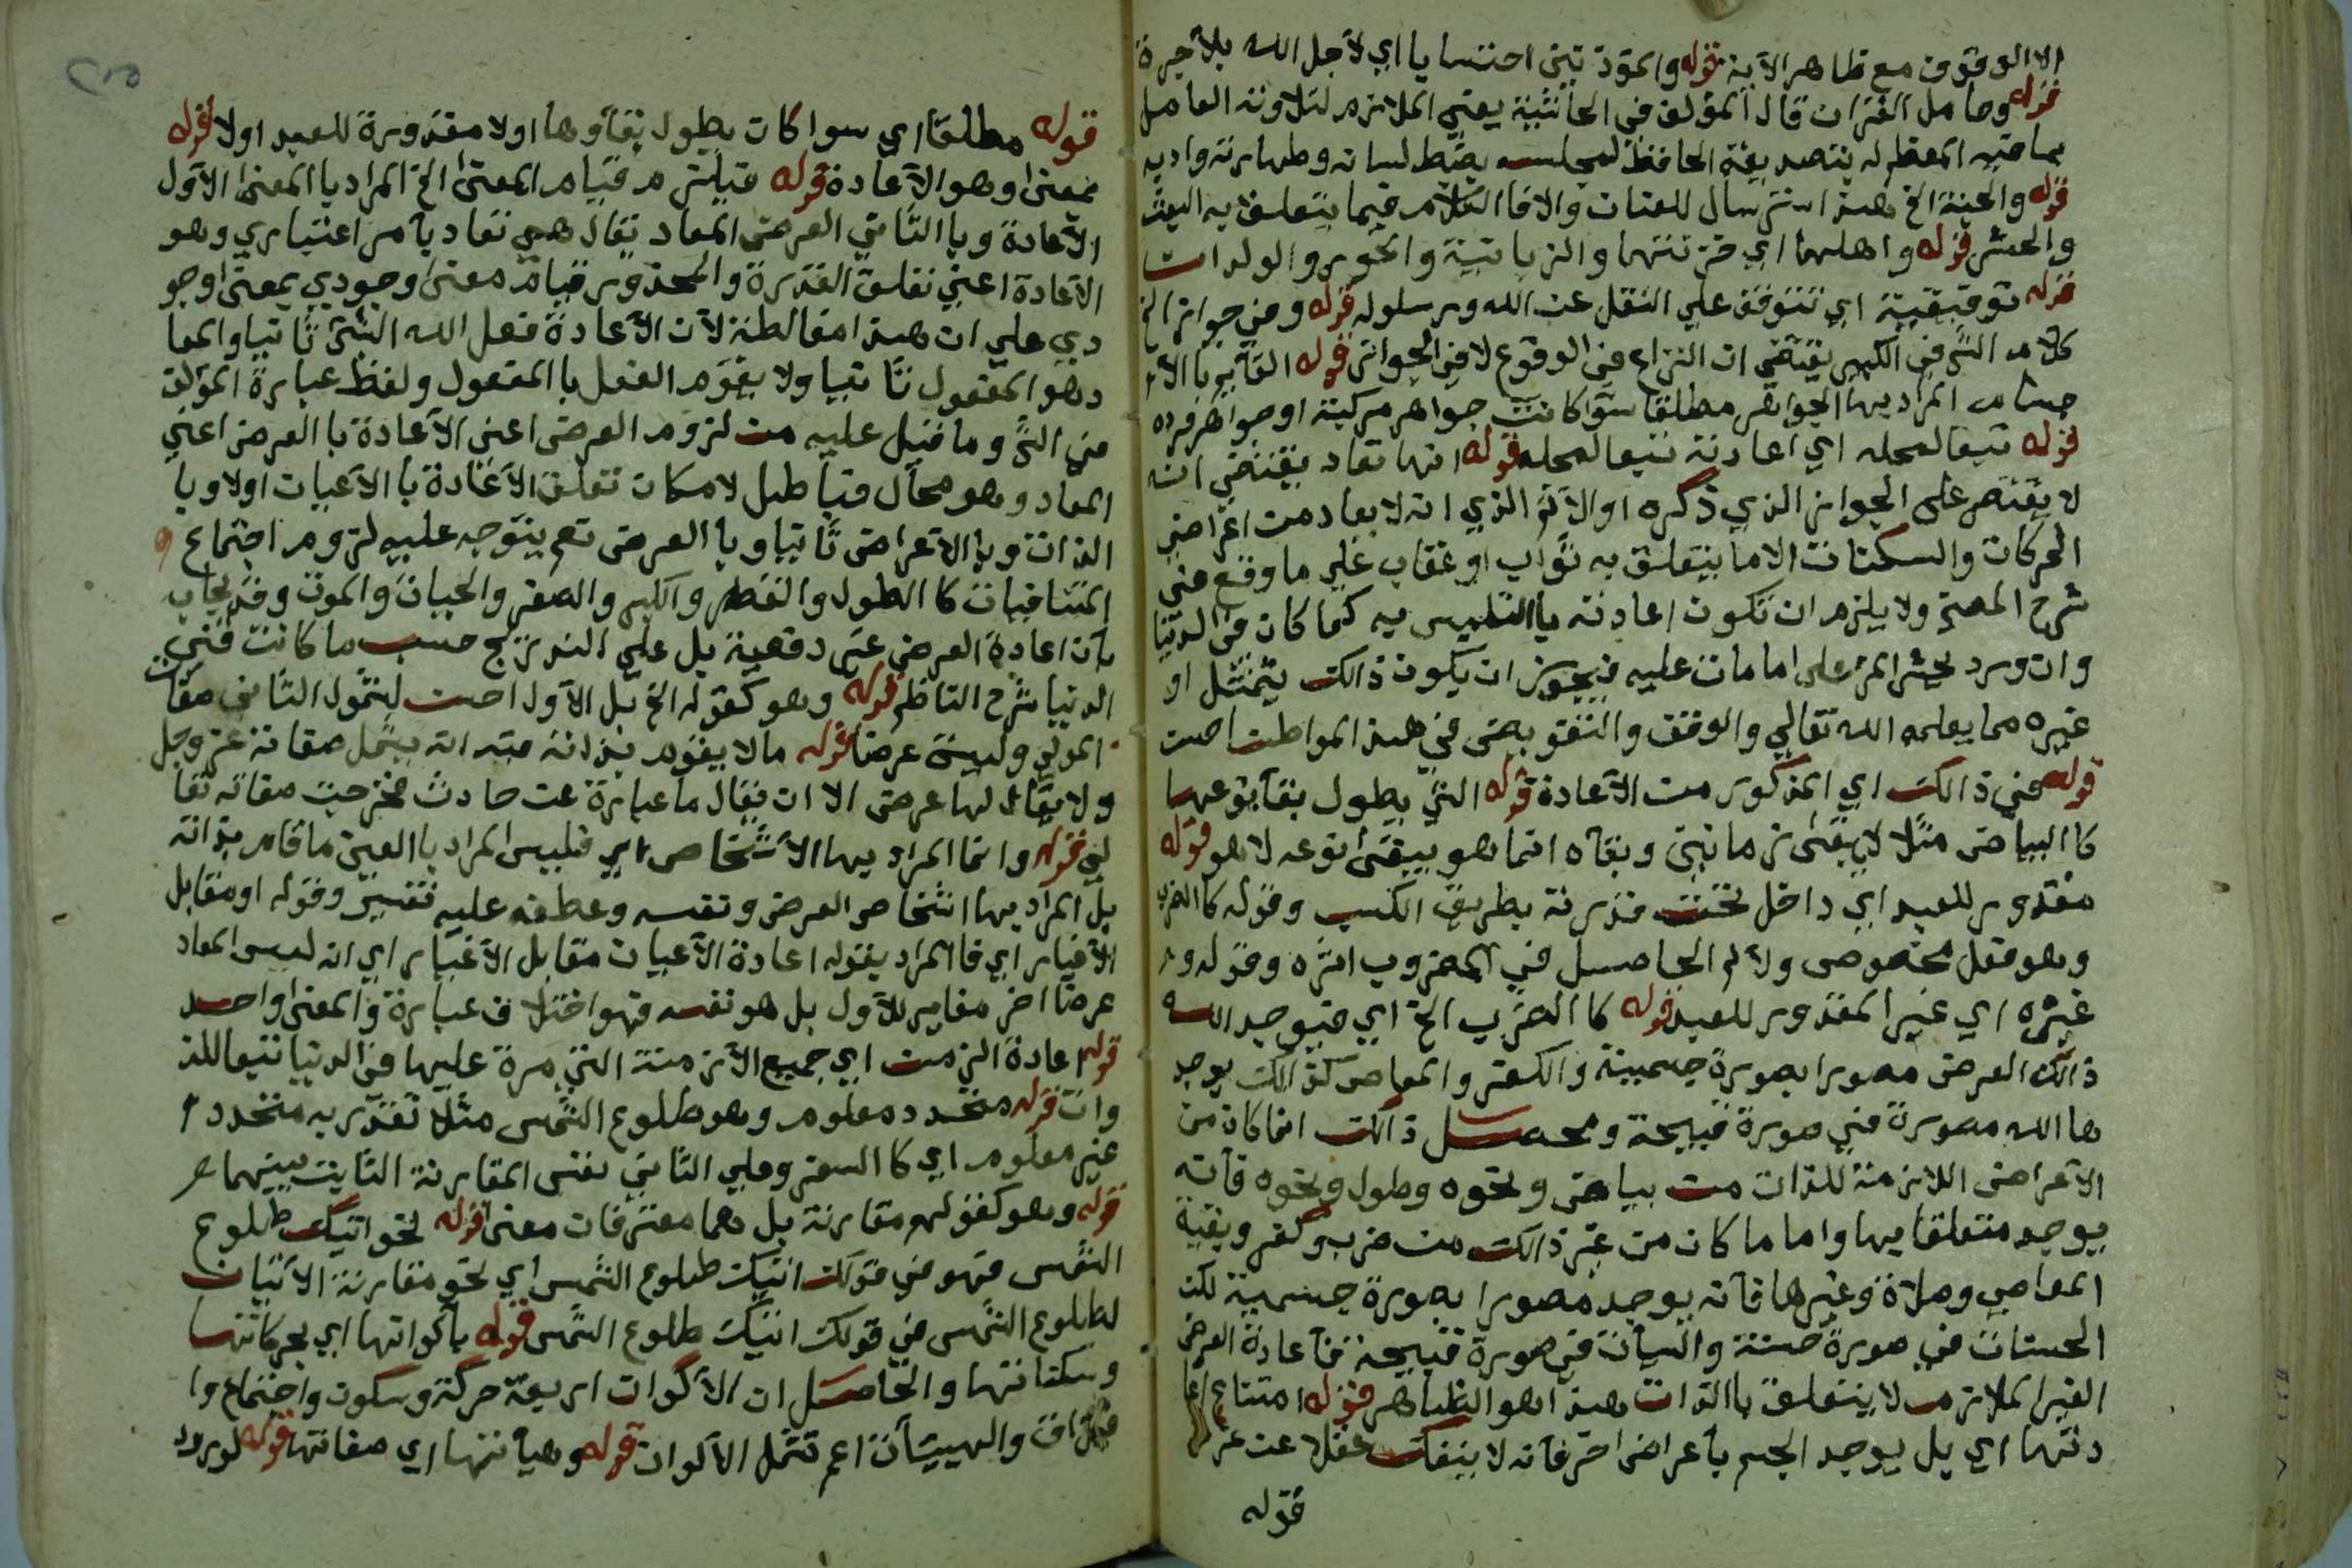 الا الوقوف مع ظاهر الآية قوله والمؤذن يبني احتسابا اي لاجل الله بلا أجرة
قوله وحامل القرآن قال المؤلف في الحاشية يعني الملازم لتلاوته العامل
بما فيه المعظم له بنصديقه الحافظ لمجلسه يضبط لسانه وطهارته وادبه
قوله والجنة الخ هذا استرسال للعنان والا فالكلام فيما يتعلق به البعث
والحشر قوله واهلهما اي خزنتهما والزبانية والحور والولدات
قوله توقيفية اي تتوقف على النقل عن الله ورسلوله قوله وفي جواز الخ
كلام الش في الكبير يقتضي ان النزاع في الوقوع لا في الجواز قوله القآيم بالا
جسام المراد بها الجواهر مطلقا سوآ كانت جواهر مركبة او جواهر فرده
قوله تبعا لمحله اي اعادته تبعا لمحله قوله انها تعاد يقتضي انه
لا يقتصر على الجواز الذي ذكره اولا ثم الذي انه لا يعاد من اعراض
الحركات والسكنات الا ما يتعلق به ثواب او عقاب على ما وقع في
شرح المص ولا يلزم ان تكون اعادته بالتلبس به كما كان في الدنيا
وان ورد يحشر المرء على ما مات عليه فيجوز ان يكون ذالك يتمثل او
غيره مما يعلمه الله تعالى والوقف والتفويض في هذا المواطن احسن
قوله في ذالك اي المذكور من الاعادة قوله التي يطول بقآؤ نوعها
كالبياض مثلا لا يبقى زمانين وبقآه انما هو ببقى نوعه لا هو قوله
مقدور للعبد اي داخل تحت قدرته بطريق الكسب وقوله كالضرب
وهو فعل مخصوص والالم الحاصل في المضروب اثره وقوله و
غيره اي غير المقدور للعبد قوله كالضرب الخ اي فيوجد الله
ذالك العرض مصورا بصورة جسمية والكفر والمعاصي كذالك يوجد
ها الله مصورة في صورة قبيحة ومحصل ذالك انما كان من
الاعراض اللازمة للذات من بياض ونحوه وطول ونحوه فانه
يوجد متعلقا بها واما ما كان من غير ذالك من ضرب وكفر وبقية
المعاصي وصلاة وغيرها فانه يوجد مصورا بصورة جسمية لكن
الحسنات في صورة حسنة والسيآت في صورة قبيحة فآعادة العرض
الغير الملازم لا يتعلق بالذات هذا هو الظاهر قوله امتناع اعا
دتها اي بل يوجد الجسم بأعراض اخر فانه لا ينفك عقلا عن عرض
قوله
قوله مطلقا اي سوا كان يطول بقآوها اولا مقدورة للعبد اولا قوله
بمعنى وهو الاعادة قوله فيلزم قيام المعنى الخ المراد بالمعنى الاول
الاعادة وبالثاني العرض المعاد يقال هي تعاد بأمر اعتباري وهو
الاعادة اعني تعلق القدرة والمحذور قيام معنى وجودي بمعنى وجو
دي على ان هذا مغالطة لان الاعادة فعل الله الشئ ثانيا والمعا
د هو المفعول ثانيا ولا يقوم الفعل بالمفعول ولفظ عبارة المؤلف
في الش وما قيل عليه من لزوم العرض اعني الاعادة بالعرض اعني
المعاد وهو محال فباطل لامكان تعلق الاعادة بالاعيان اولا وبا
الذات وبالاعراض ثانيا وبالعرض نعم يتوجه عليه لزوم اجتماع
المتنافيات كالطول والقصر والكبر والصغر والحيات والموت وقد يجاب
بأن اعادة العرض غير دفعية بل على التدريج حسب ما كانت في
الدنيا شرح الناظم قوله وهو كقوله الخ بل الاول احسن لشمول الثاني صفات
المولى وليس عرضا قوله ما لا يقوم بذاته فيه انه يشمل صفاته عز وجل
ولا يقال لها عرض الا ان يقال ما عبارة عن حادث فخرجت صفاته تعا
لى قوله وانما المراد بها الاشخاص اي فليس المراد بالعين ما قام بذاته
بل المراد بها اشخاص العرض ونفسه وعطفه عليه تفسير وقوله او مقابل
الاغيار اي فالمراد بقوله اعادة الاعيان مقابل الاغيار اي انه ليس المعاد
عرضا اخر مغاير للاول بل هو نفسه فهو اختلاف عبارة والمعنى واحد
قوله اعادة الزمن اي جميع الازمنة التي مرة عليها في الدنيا تبعا للذ
وات قوله متجدد معلوم وهو طلوع الشمس مثلا تقدر به متجدد ا
غير معلوم اي كالسفر وعلى الثاني نفس المقارنة الثابت بينهما
قوله وهو كقولهم مقارنة بل هما مفترقان معنى قوله نحو اتيك طلوع
الشمس فهو في قولك اتيك طلوع الشمس اي نحو مقارنة الاتيان
لطلوع الشمس في قولك اتيك طلوع الشمس قوله بأكوانها اي بحركاتها
وسكناتها والحاصل ان الاكوان اربعة حركة وسكون واجتماع وا
فتراق والهيئآت اعم تشمل الاكوان قوله وهيأتها اي صفاتها قوله لورود